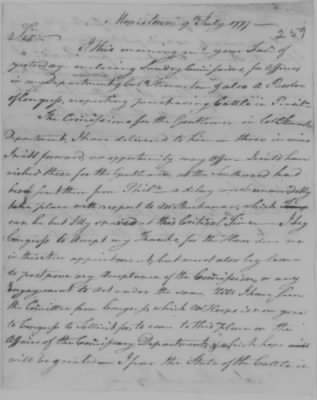 Morristown 9th July 1777
259
Sir
this morning rec'd your favr. of
yesterday enclosing Sundry Commissions for Officers
in my Department by Col. Stewart & also a Resolve
of Congress, respecting purchasing Cattle in
The Commissions for the Gentlemen in Col. Stewarts
Department, I have delivered to him those in mine
I will forward as opportunity may offer. I could have
wished those for the Gentlemen at the Southward had
been sent them from a delay must unavoidably
take place with respect to Mr. Buchanan, which
can be but illy spared at this Critical time I beg
Congress to Accept my thanks, for the Honr. done me
in this New appointment, but must also beg leave
to postpone my Acceptance of the Commission, or any
Engagement to Act under the same, till I have seen
the Committee from Congress which Mr. is now gone
to Congress to Sollicit for, to come to this Place on the
Affairs of the Commissary Department, & which I hope will
will be granted I fear the State of the Cattle in